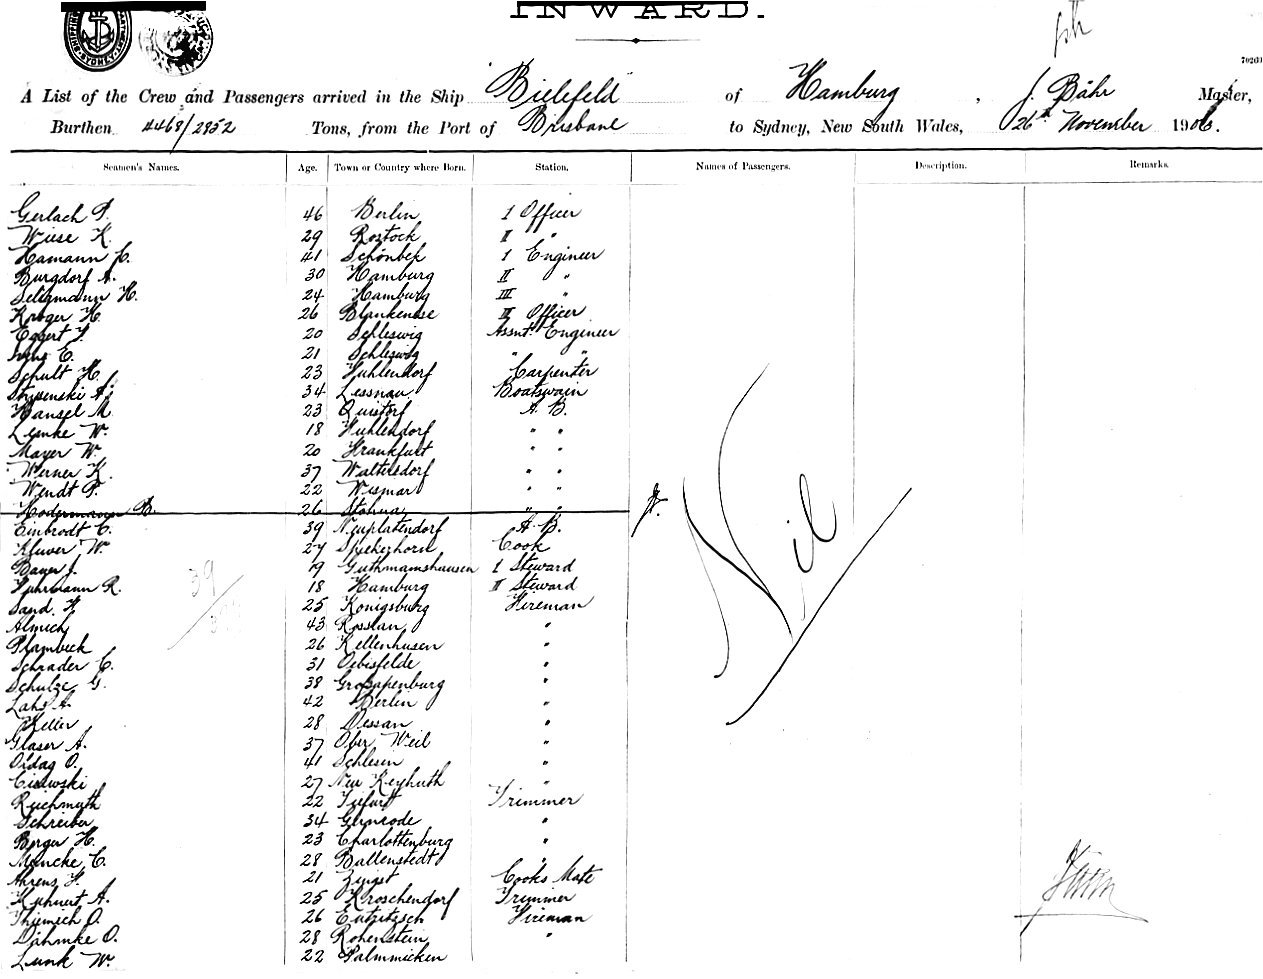 INWARD.
A List of the Crew and Passengers arrived in the Ship Bielefeld of Hamburg, J. Bähr Master,
Burthen 4468/2852 Tons, from the Port of Brisbane to Sydney, New South Wales, 26th November 1906.
Seamen's Names. Age. Town or Country where Born. Station. Names of Passengers. Description. Remarks.
Gerlach P. 46 Berlin I Officer
Wiese K. 29 Rostock II "
Hamann 41 Schönbek I Engineer
Burgdorf A. 30 Hamburg II "
Seligmann H. 24 Hamburg III "
Kroger H. 26 Blankenese II Officer
Eggert 20 Schleswig Assnt. Engineer
E. 21 Schleswig " "
Schult H. 23 Carpenter
34 Lessnau Boatswain
Hansel M. 23 Quistorf A. B.
Lemke W. 18 " "
Mayer W. 20 Frankfurt " "
Werner K. 37 Waltersdorf " "
Wendt P. 22 Wismar " "
B. 26 " "
Einbrodt C. 39 Neuplatendorf A. B.
Kluver W. 27 Spiekerhorn Cook
Bayer J. 19 Guthmamshausen I Steward
Fuhrmann R. 18 Hamburg II Steward
Sand. F. 25 Konigsburg Fireman
Almich 43 Rosslau "
Plambeck 26 Kellenhusen "
Schrader C. 31 Oebisfelde "
Schulze G. 38 Großapenburg "
Lahs A. 42 Berlin "
Keller 28 Dessau "
Glaser A. 37 Ober Weil "
Oldag O. 41 Schlesin "
27 Neu Keyhuth "
Reichmuth 22 Trimmer
Schreiber 34 Gernrode "
Berger H. 23 Charlottenburg "
Mencke C. 28 Ballenstedt "
Ahrens F. 21 Zingst Cooks Mate
Kuhnert A. 25 Kroschendorf Trimmer
Thiemich O. 26 Fireman
Dähmke O. 28 Hohenstein "
Lunk W. 22 Palmnicken
Nil
39